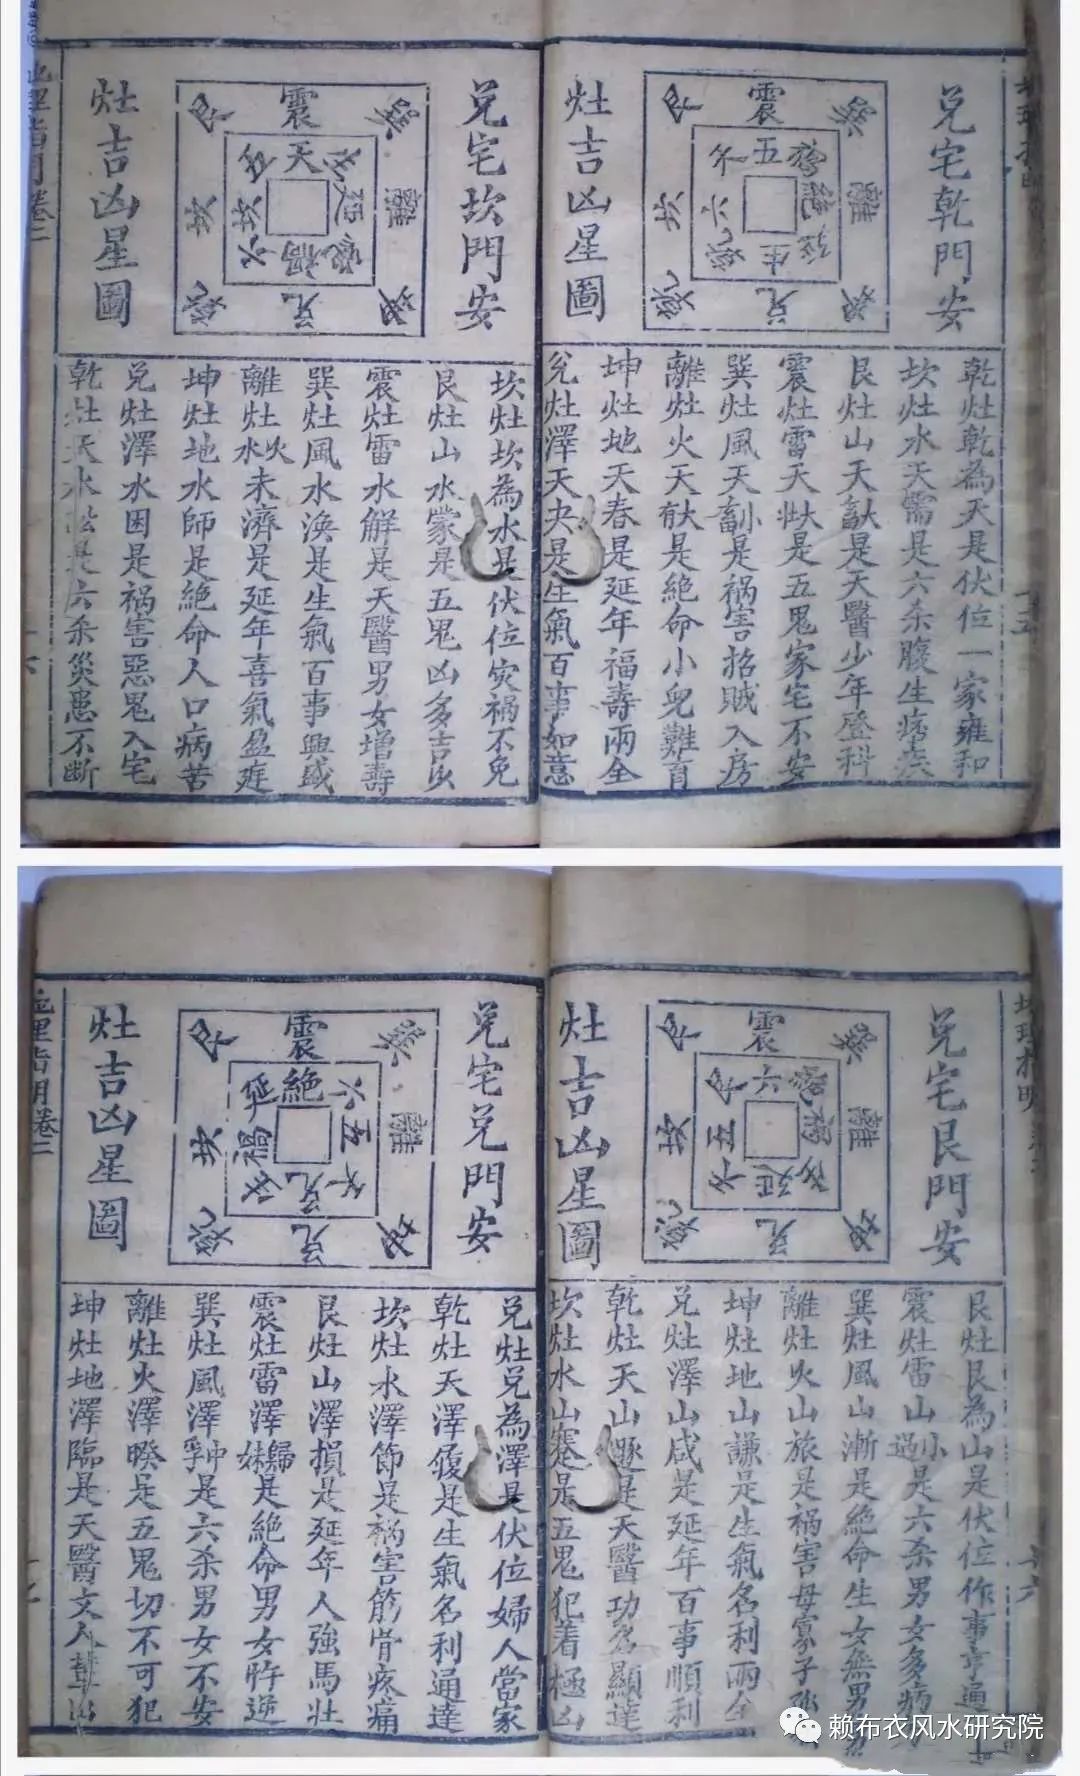 兌宅乾門安
灶吉凶星圖
震
巽
離
坤
兌
乾
坎
艮
五
禍
絕
延
生
六
天
乾灶乾為天是伏位一家雍和
坎灶水天需是六杀腹生痨疾
艮灶山天大畜是天醫少年登科
震灶雷天大壯是五鬼家宅不安
巽灶風天小畜是禍害招賊入房
離灶火天大有是絕命小兒難育
坤灶地天泰是延年福壽兩全
兌灶澤天夬是生氣百事如意
兌宅坎門安
灶吉凶星圖
震
巽
離
坤
兌
乾
坎
艮
天
生
延
絕
禍
六
坎
五
坎灶坎為水是伏位灾禍不免
艮灶山水蒙是五鬼凶多吉少
震灶雷水解是天醫男女增壽
巽灶風水渙是生氣百事興盛
離灶火水未濟是延年喜氣盈庭
坤灶地水師是絕命人口病苦
兌灶澤水困是禍害惡鬼入宅
乾灶天水訟是六杀災患不斷
地理指明卷二
兌宅艮門安
灶吉凶星圖
震
巽
離
坤
兌
乾
坎
艮
六
絕
禍
生
延
天
五
艮
艮灶艮為山是伏位作事亨通
震灶雷山小過是六杀男女多病
巽灶風山漸是絕命生女無男
離灶火山旅是禍害母寡子孤
坤灶地山謙是生氣名利兩全
兌灶澤山咸是延年百事順利
乾灶天山遯是天醫功名顯達
坎灶水山蹇是五鬼犯着極凶
兌宅兌門安
灶吉凶星圖
震
巽
離
坤
兌
乾
坎
艮
絕
六
五
天
兌
生
禍
延
兌灶兌為澤是伏位婦人當家
乾灶天澤履是生氣名利通達
坎灶水澤節是禍害筋骨疼痛
艮灶山澤損是延年人強馬壯
震灶雷澤歸妹是絕命男女忤逆
巽灶風澤中孚是六杀男女不安
離灶火澤暌是五鬼切不可犯
坤灶地澤臨是天醫文人輩出
地理指明卷二
赖布衣风水研究院